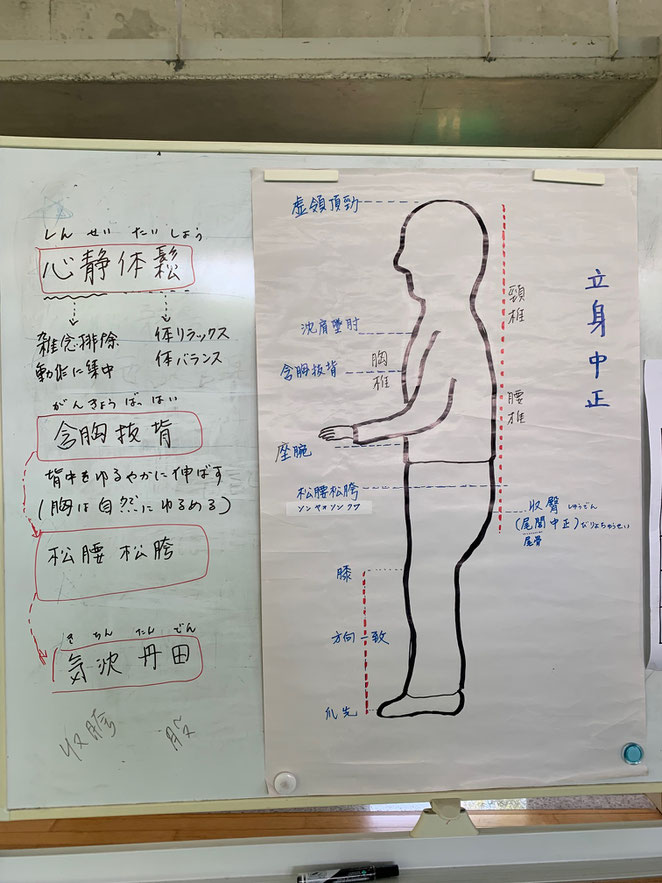 しん せい たい しょう
心静体鬆
雑念排除
動作に集中
体リラックス
体バランス
がん きょう ばっ はい
含胸抜背
背中をゆるやかに伸ばす
(胸は自然にゆるめる)
松腰松胯
き ちん たん でん
気沈丹田
収
虚領頂勁
沈肩墜肘
含胸抜背
胸椎
座腕
松腰松胯
ソンヤオソンクワ
膝
方向一致
爪先
頸椎
腰椎
収臀 しゅうでん
(尾閭中正)びりょちゅうせい
尾骨
立身中正